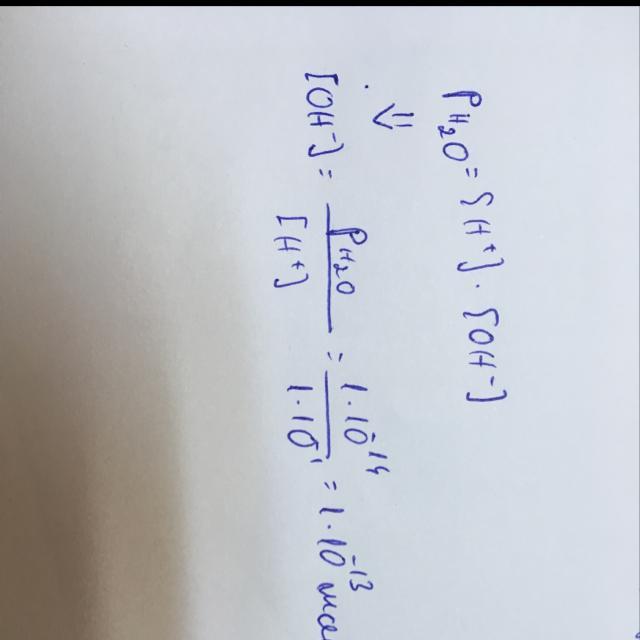 P H₂O = [H⁺] · [OH⁻]
⇓
[OH⁻] = P H₂O / [H⁺] = 1·10⁻¹⁴ / 1·10⁻¹ = 1·10⁻¹³